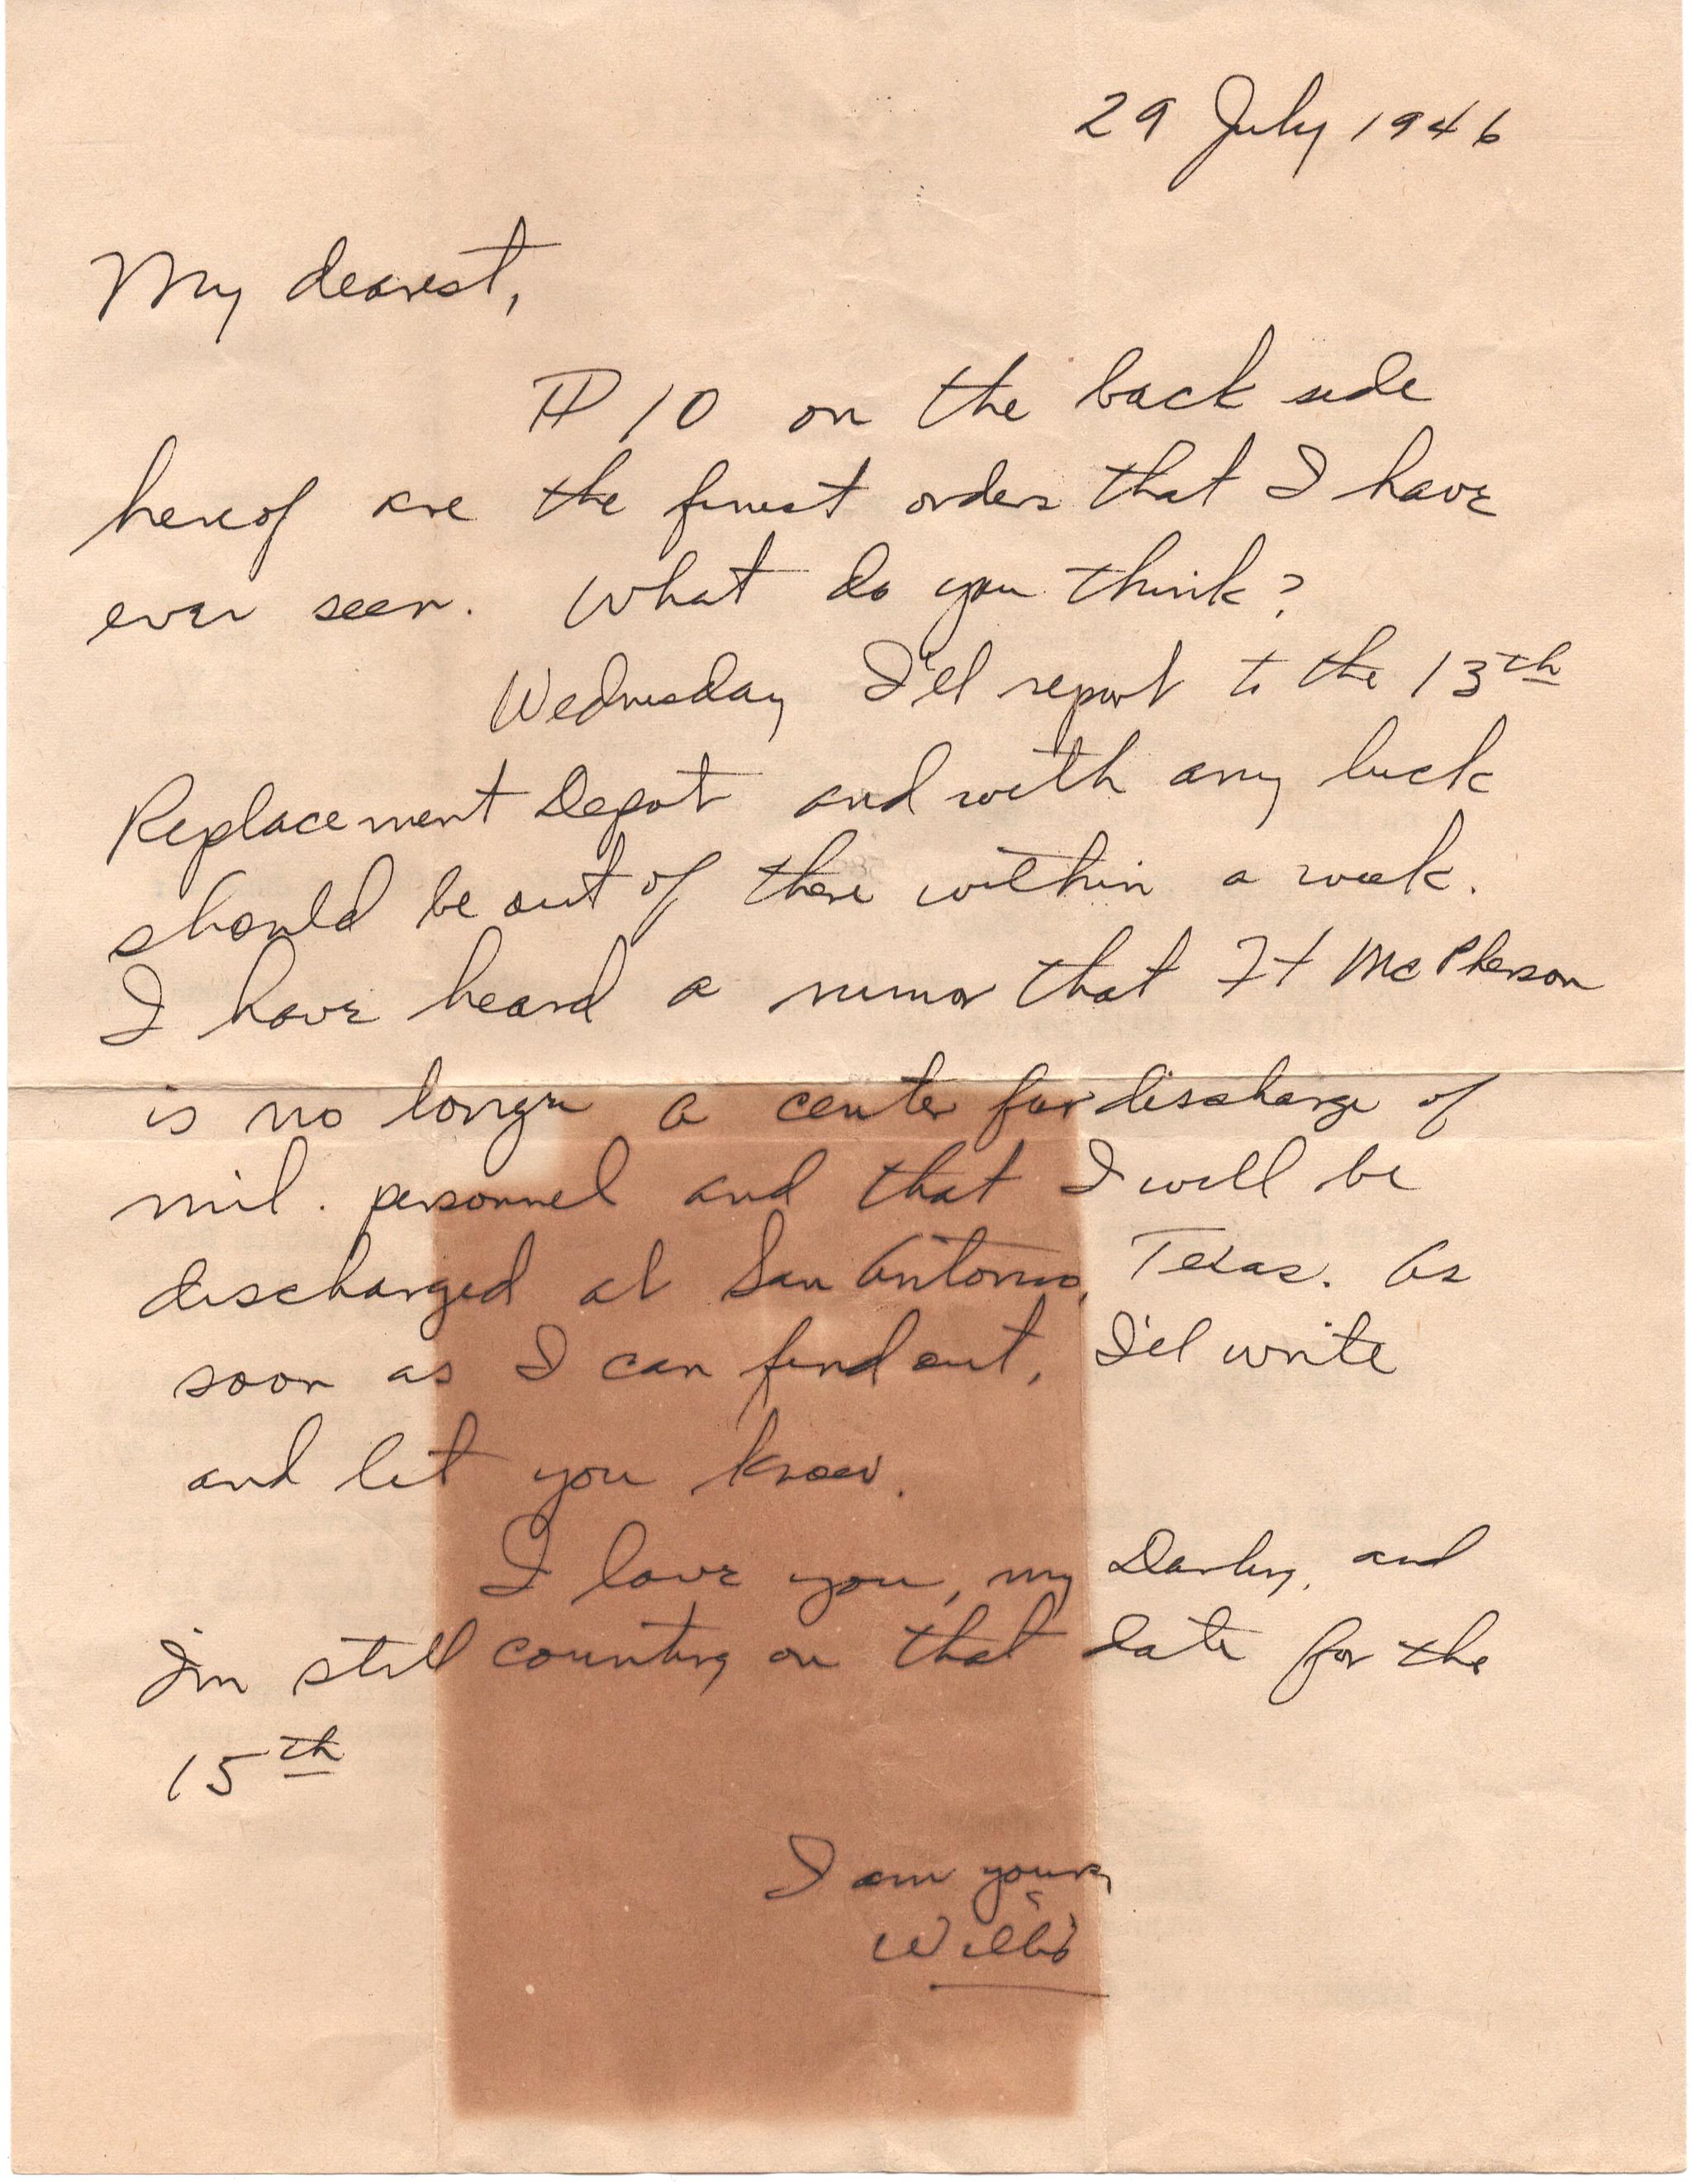 29 July 1946
My dearest,
¶ 10 on the back side
hereof are the finest orders that I have
ever seen. What do you think?
Wednesday I'll report to the 13th
Replacement Depot and with any luck
should be out of there within a week.
I have heard a rumor that Ft McPherson
is no longer a center for discharge of
mil. personnel and that I will be
discharged at San Antonio, Texas. As
soon as I can find out, I'll write
and let you know.
I love you, my Darling, and
I'm still counting on that date for the
15th
I am yours,
Willis